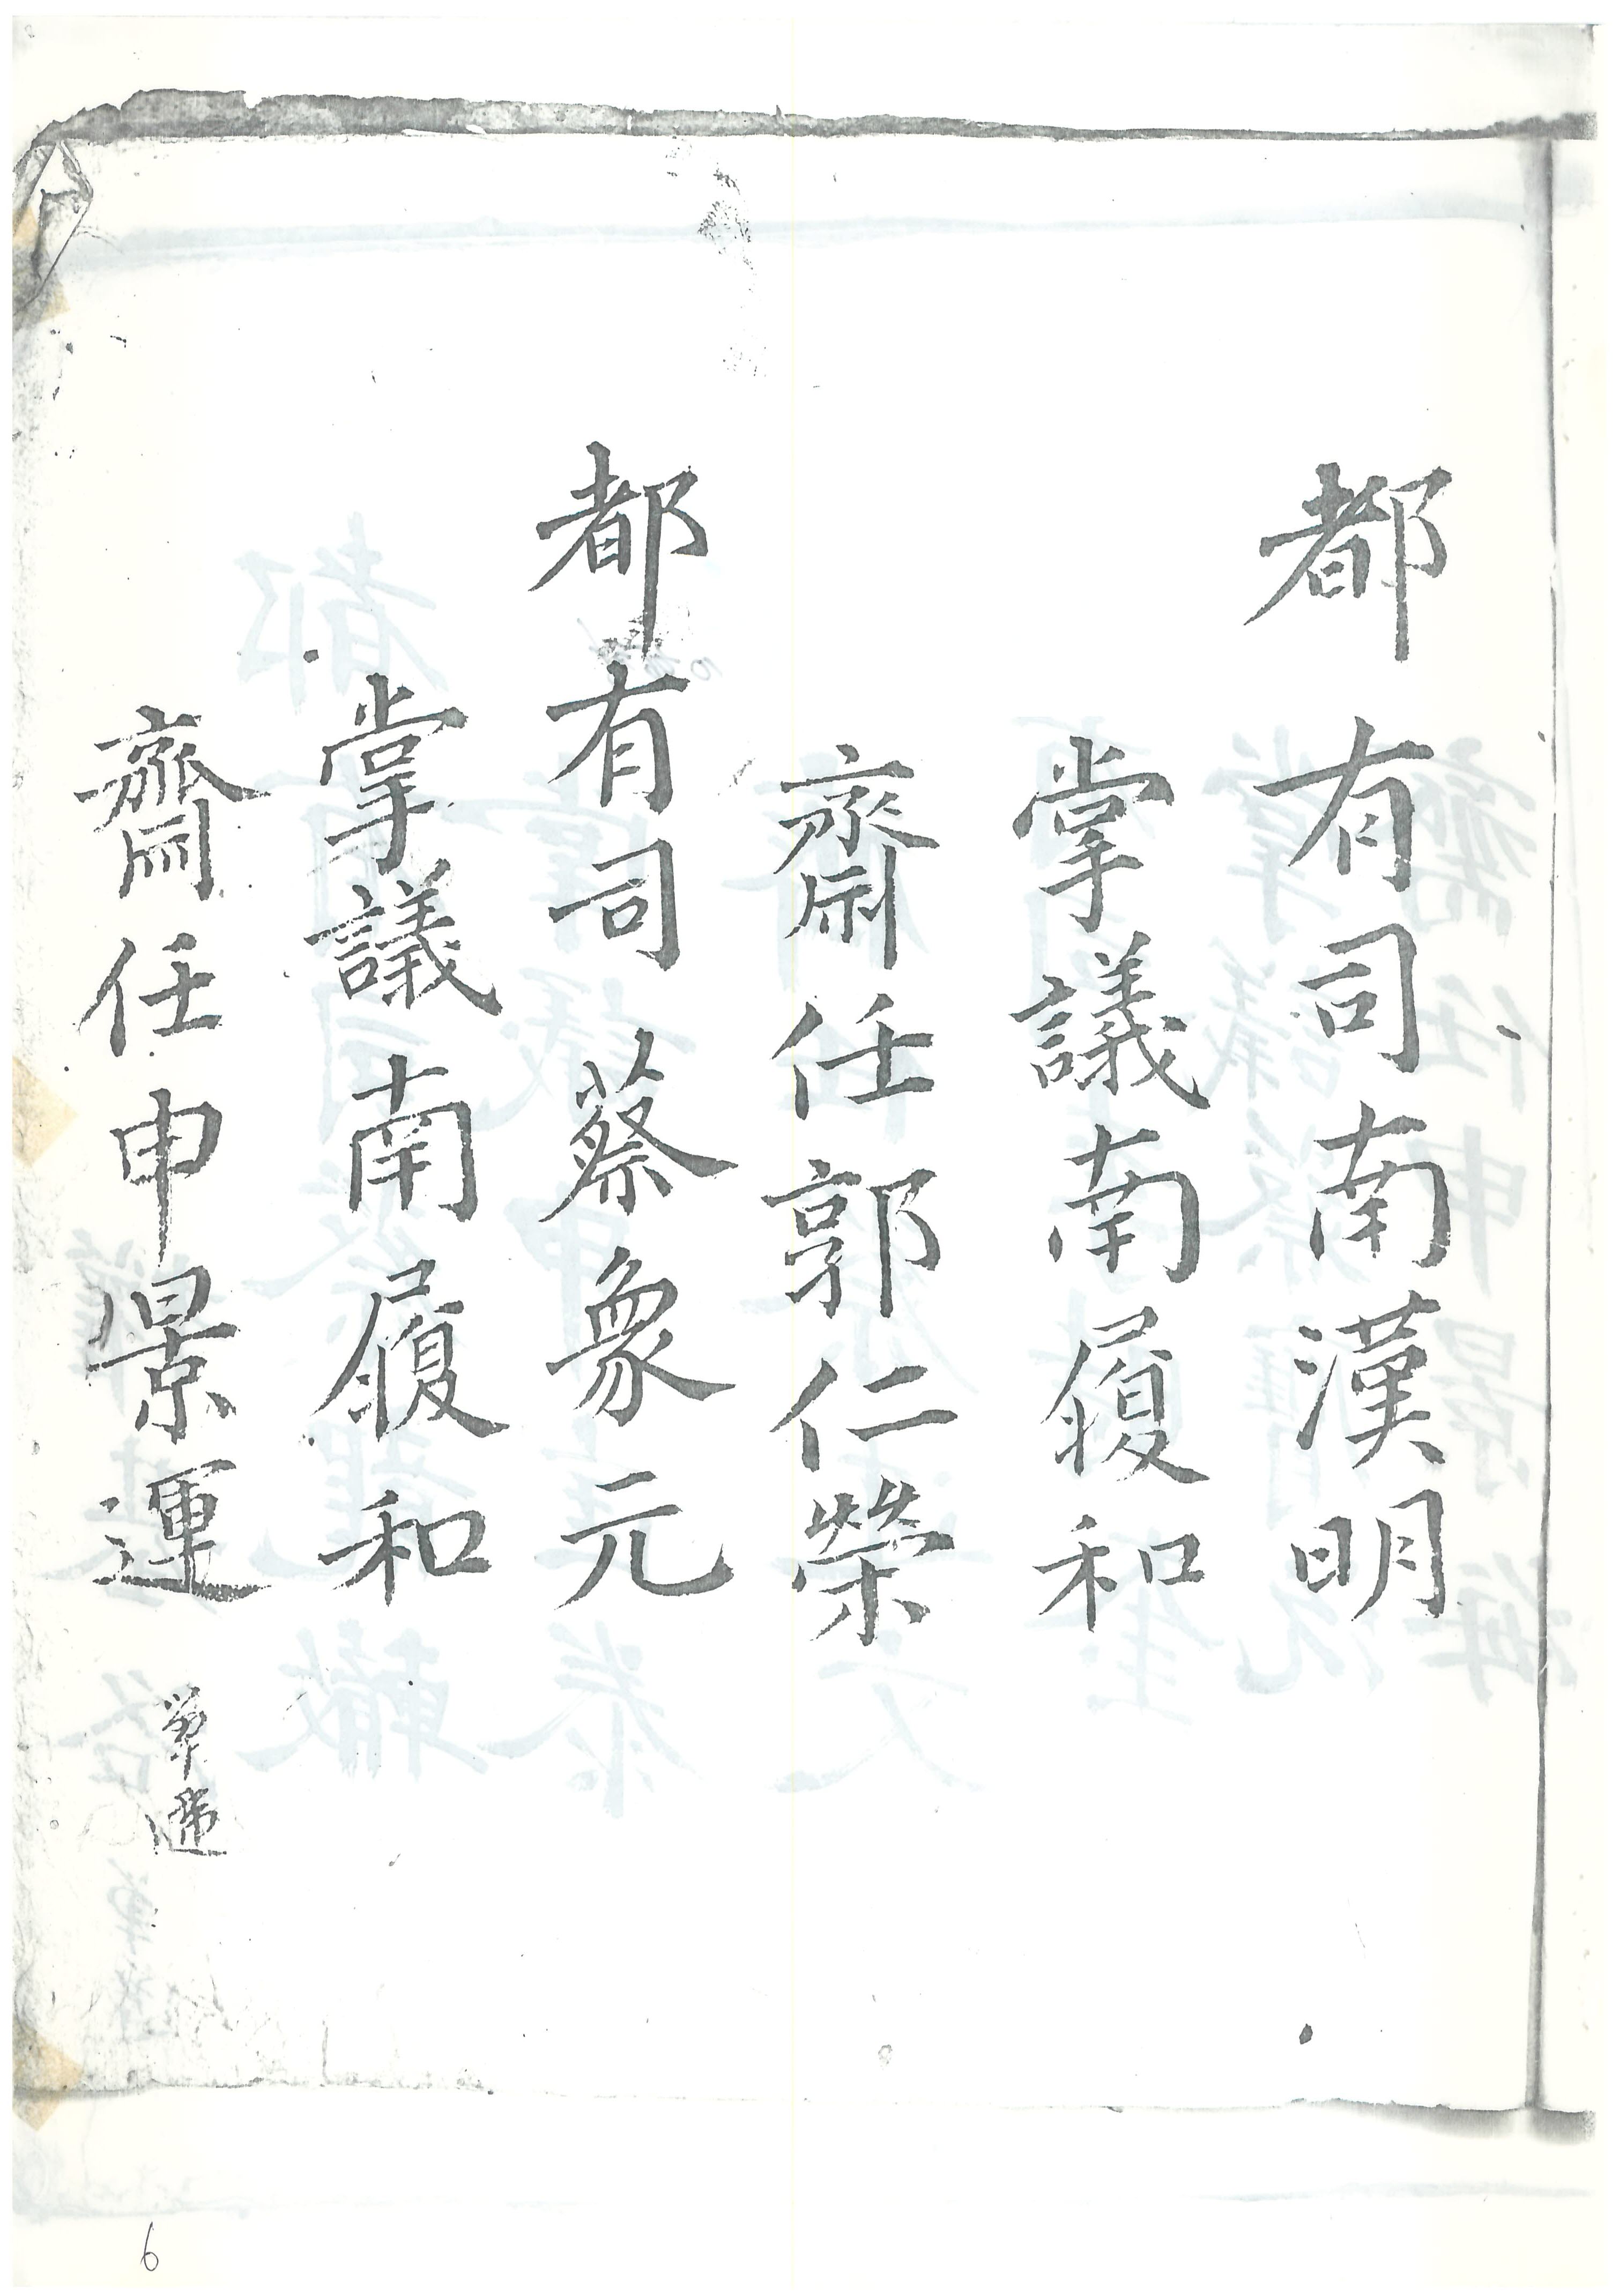 都有司南漢明
掌議南履和
齋任郭仁榮
都有司蔡象元
掌議南履和
齋任申景運 單遞
6